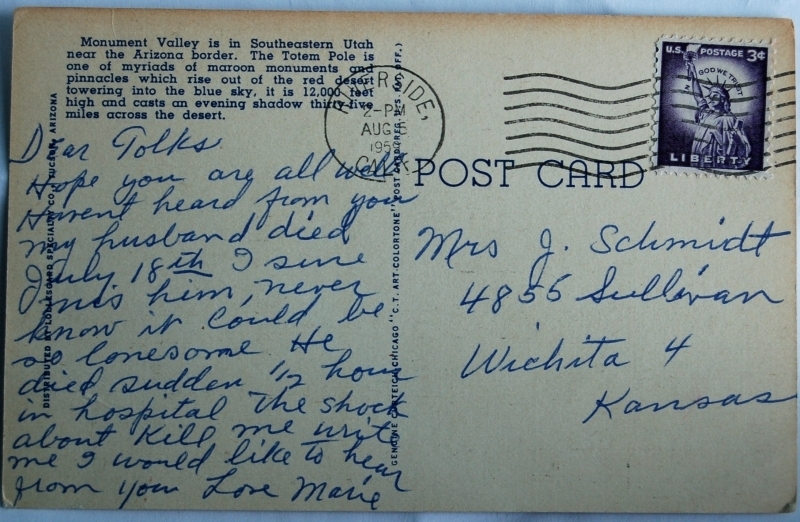 Monument Valley is in Southeastern Utah
near the Arizona border. The Totem Pole is
one of myriads of maroon monuments and
pinnacles which rise out of the red desert
towering into the blue sky, it is 12,000 feet
high and casts an evening shadow thirty-five
miles across the desert.
RIVERSIDE,
2-PM
AUG
195
CALIF.
U.S. POSTAGE 3¢
IN GOD WE TRUST
LIBERTY
POST CARD
Dear Folks
Hope you are all well
Havent heard from you
my husband died
July 18th I sure
miss him, never
know it could be
so lonesome He
died sudden 1/2 hour
in hospital The shock
about Kill me write
me I would like to hear
from you Love Marie
Mrs J. Schmidt
4855 Sullivan
Wichita 4
Kansas
DISTRIBUTED BY LOLLESGARD SPECIALTY CO., TUCSON, ARIZONA
GENUINE CURTEICH-CHICAGO "C.T. ART-COLORTONE" POST CARD (REG. U.S. PAT. OFF.)